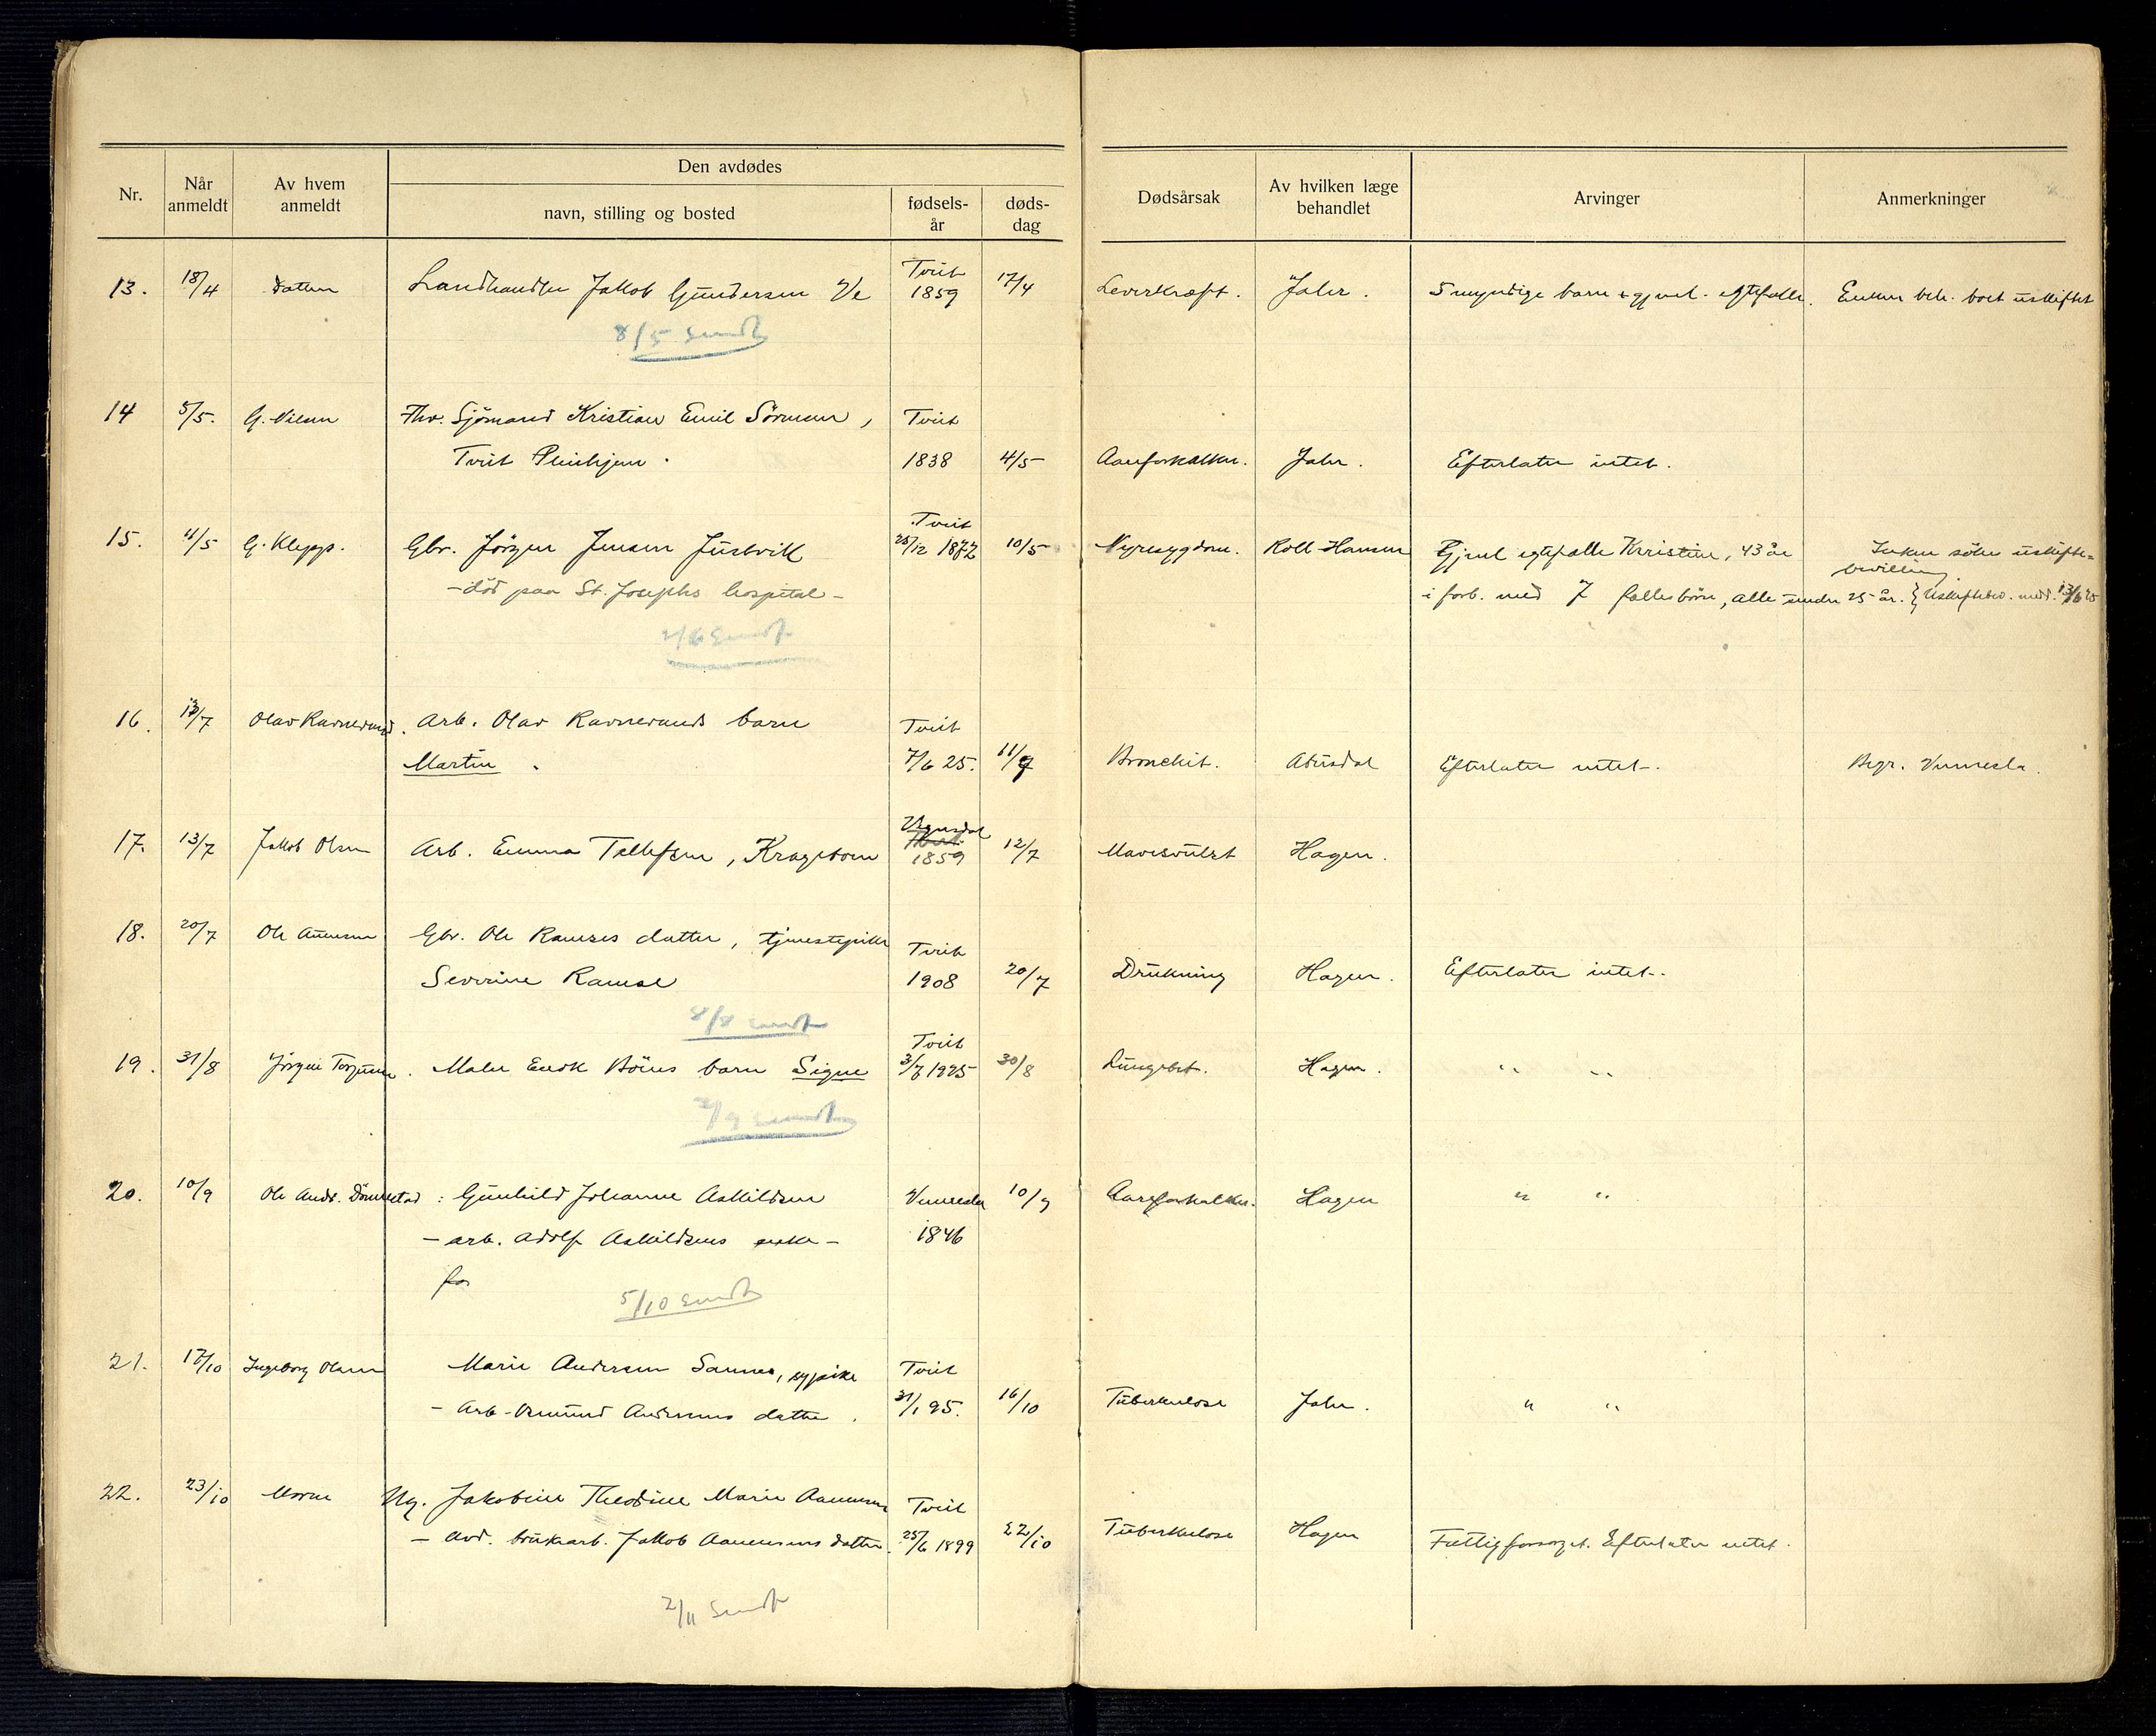 Nr.
Når anmeldt
Av hvem anmeldt
Den avdødes
navn, stilling og bosted
fødsels-år
døds-dag
Dødsårsak
Av hvilken læge behandlet
Arvinger
Anmerkninger
13. 18/4 Landhandler Jakob Gundersen Ve Tveit 1859 17/4 Leverkræft. Jahr. 5 myndige barn + gjenl. egtefælle. Enken beh. boet uskiftet
8/5 sendt
14 5/5. G. Nilsen Fhv. Sjömand Kristian Emil Sörensen, Tveit
Tveit Pleiehjem. 1838 4/5 Aareforkalkn. Jahr. Efterlater intet.
15. 11/5 G. Klepp. Gbr. Jörgen Jensen Justvik Tveit 25/12 1872 10/5 Nyresygdom. Roll Hansen Gjenl egtefælle Kristine, 43 år Enken söker uskifte=
bevilling
- död paa St. Josephs hospital - i forb. med 7 fællesbörn, alle under 25 år. } Uskiftebev. medd. 13/6 25
2/6 sendt
16. 13/7 Olav Ravnevand. Arb. Olav Ravnevands barn Tveit
Martin. 7/6 25. 11/7 Bronchit. Abusdal Efterlater intet. Begr. Vennesla.
17. 13/7 Jakob Olsen Arb. Emma Tellefsen, Krageboen 1859 12/7 Mavesvulst Hagen.
18. 20/7 Ole Aunesen Gbr. Ole Ramses datter, tjenestepike Tveit
Severine Ramse 1908 20/7 Drukning Hagen. Efterlater intet.
8/8 sendt
19. 31/8 Jörgen Torjusen. Maler Enok Böens barn Signe Tveit 3/7 1925 30/8 Lungebet. Hagen. " "
2/9 sendt
20. 10/9 Ole Andr. Dönnestad: Gunhild Johanne Askildsen Vennesla 10/9 Aareforkalkn. Hagen " "
- arb. Adolf Askildsens enke - 1846
5/10 sendt
21. 17/10 Ingeborg Olsen Marie Andersen Sannes, sypike Tveit
- Arb. Andersens datter. 31/1 95. 16/10 Tuberkulose Jahr. " "
22. 23/10 Moren Ug. Jakobine Theodine Marie Aanensen Tveit
- avd. brukarb. Jakob Aanensens datter. 25/6 1899 22/10 Tuberkulose Hagen Fattigforsorget. Efterlater intet.
2/11 sendt